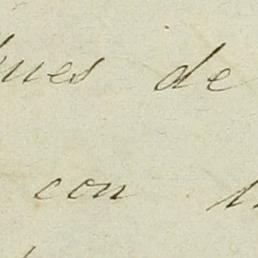 ques de
con